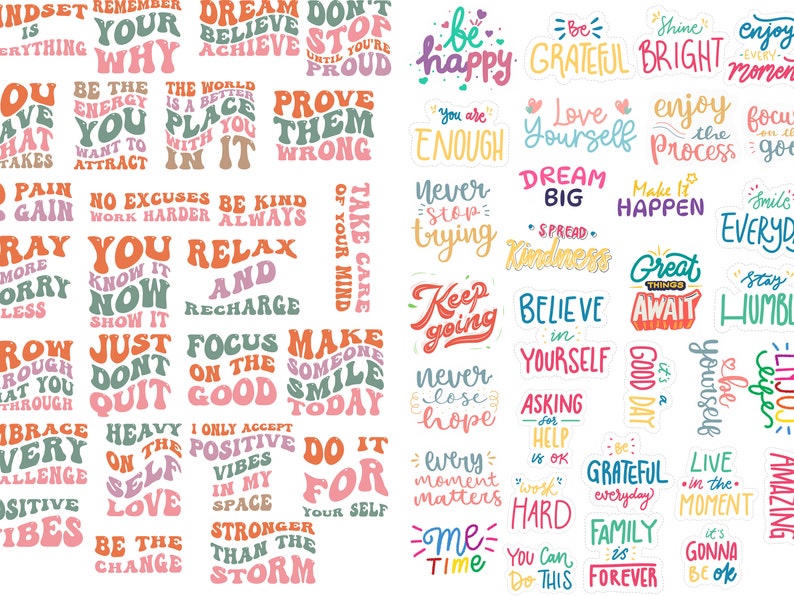 MINDSET
IS
EVERYTHING
REMEMBER
YOUR
WHY
DREAM
BELIEVE
ACHIEVE
DON'T
STOP
UNTIL YOU'RE
PROUD
YOU
HAVE
WHAT
TAKES
BE THE
ENERGY
YOU
WANT TO
ATTRACT
THE WORLD
IS A BETTER
PLACE
WITH YOU
IN IT
PROVE
THEM
WRONG
NO PAIN
NO GAIN
NO EXCUSES
WORK HARDER
BE KIND
ALWAYS
TAKE CARE
OF YOUR MIND
PRAY
MORE
WORRY
LESS
YOU
KNOW IT
NOW
SHOW IT
RELAX
AND
RECHARGE
GROW
THROUGH
WHAT YOU
GO THROUGH
JUST
DONT
QUIT
FOCUS
ON THE
GOOD
MAKE
SOMEONE
SMILE
TODAY
EMBRACE
EVERY
CHALLENGE
HEAVY
ON THE
SELF
LOVE
I ONLY ACCEPT
POSITIVE
VIBES
IN MY
SPACE
DO IT
FOR
YOUR SELF
POSITIVE
VIBES
BE THE
CHANGE
STRONGER
THAN THE
STORM
be
happy
Be
GRATEFUL
Shine
BRIGHT
enjoy
EVERY
moment
You are
ENOUGH
Love
Yourself
enjoy
the
process
focus
on the
good
never
stop
trying
DREAM
BIG
Make It
HAPPEN
Smile
EVERYDAY
SPREAD
Kindness
Great
THINGS
AWAIT
Stay
HUMBLE
Keep
going
BELIEVE
in
YOURSELF
it's a
GOOD DAY
be
yourself
ENJOY
life
never
lose
hope
ASKING
for
HELP
is OK
every
moment
matters
work
HARD
Be
GRATEFUL
everyday
LIVE
in the
MOMENT
AMAZING
me
TIME
You Can
Do THIS
FAMILY
is
FOREVER
it's
GONNA
BE ok